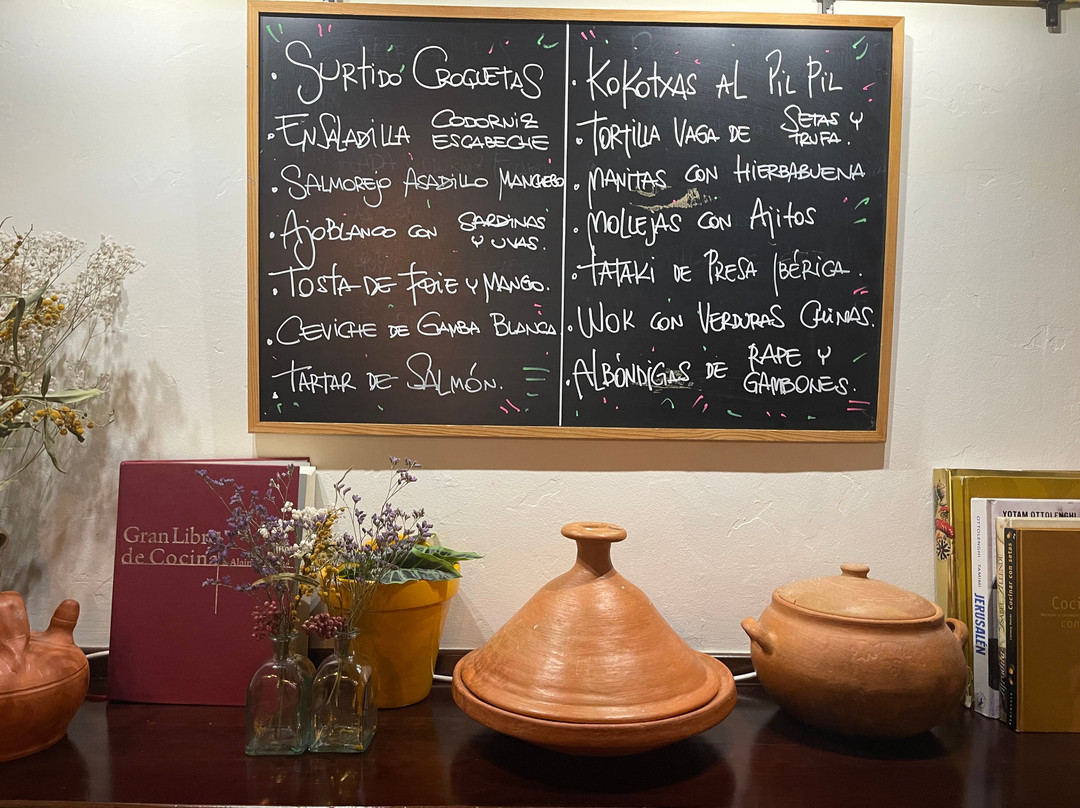 • SURTIDO CROQUETAS
• ENSALADILLA CODORNIZ ESCABECHE
• SALMOREJO ASADILLO MANCHEGO
• AJOBLANCO CON SARDINAS Y UVAS.
• TOSTA DE FOIE Y MANGO.
• CEVICHE DE GAMBA BLANCA
• TARTAR DE SALMÓN.
• KOKOTXAS AL PIL PIL
• TORTILLA VAGA DE SETAS Y TRUFA.
• MANITAS CON HIERBABUENA
• MOLLEJAS CON AJITOS
• TATAKI DE PRESA IBÉRICA.
• WOK CON VERDURAS CHINAS.
• ALBÓNDIGAS DE RAPE Y GAMBONES.
Gran Libr
de Cocina
Alain
OTTOLENGHI · TAMIMI
JERUSALÉN
YOTAM OTTOLENGHI
Cocinar con setas